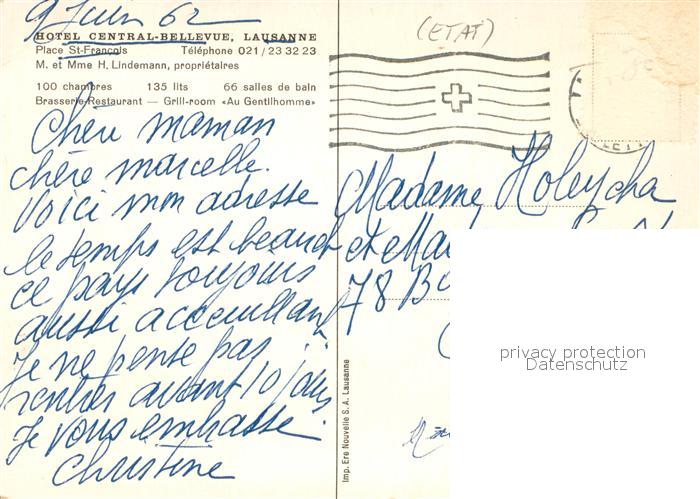 9 Juin 62
HOTEL CENTRAL-BELLEVUE, LAUSANNE
Place St-François Téléphone 021/23 32 23
M. et Mme H. Lindemann, propriétaires
100 chambres 135 lits 66 salles de bain
Brasserie-Restaurant — Grill-room «Au Gentilhomme»
(ETAT)
Chère maman
chère marcelle.
Voici mon adresse
le temps est beau et
ce pays toujours
aussi accueillant
Je ne pense pas
rentrer avant 10 jours.
Je vous embrasse.
Christine
Madame Holeycha
et Ma
78 Bd
Imp. Ere Nouvelle S. A. Lausanne
privacy protection
Datenschutz